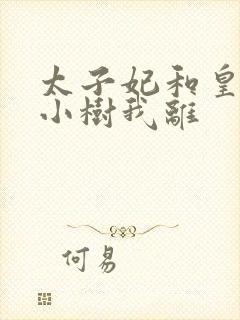 太子妃和皇
小樹我離
何易